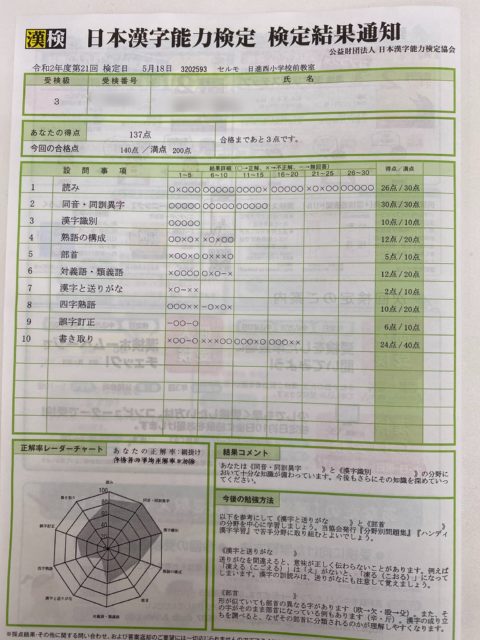 漢検 日本漢字能力検定 検定結果通知
公益財団法人 日本漢字能力検定協会
令和2年度第21回 検定日 5月18日 3202593 セルモ 日進西小学校前教室
受検級 受検番号 氏名
3
あなたの得点 137点
今回の合格点 140点 / 満点 200点
合格まであと3点です。
設問事項 結果詳細(○→正解、×→不正解、-→無回答) 得点/満点
1~5 6~10 11~15 16~20 21~25 26~30
1 読み ○×○○○ ○○○○○ ○○○○× ○○○○○ ×○×○○ ○○○○○ 26点/30点
2 同音・同訓異字 ○○○○○ ○○○○○ ○○○○○ 30点/30点
3 漢字識別 ○○○○○ 10点/10点
4 熟語の構成 ○○×○× ×○×○○ 12点/20点
5 部首 ×○○×○ ○×××○ 5点/10点
6 対義語・類義語 ×○○○○ ○×○-× 12点/20点
7 漢字と送りがな ×○-×× 2点/10点
8 四字熟語 ○○○×× -○×○× 10点/20点
9 誤字訂正 -○○-○ 6点/10点
10 書き取り ×○○-○ ××○×× ○○○×○ ○○○×× 24点/40点
正解率レーダーチャート
あなたの正解率:網掛け
読み
100
80
60
40
20
0
同音・同訓異字
漢字識別
熟語の構成
部首
対義語・類義語
漢字と送りがな
四字熟語
誤字訂正
書き取り
結果コメント
あなたは《同音・同訓異字 》と《漢字識別 》の分野に
おいて十分な知識が備わっています。今後もさらにその知識を深めていっ
てください。
今後の勉強方法
以下を参考にして《漢字と送りがな 》と《部首 》
の分野を中心に学習しましょう。当協会発行『分野別問題集』『ハンディ
漢字学習』で苦手分野に取り組むとよいでしょう。
《漢字と送りがな 》
送りがなを間違えると、意味が正しく伝わらないことがあります。例えば
「凍える(こごえる)」は「え」がないと、「凍る(こおる)」になって
しまいます。漢字の訓読みは、送りがなにも注意して覚えましょう。
《部首 》
形が似ていても部首の異なる字があります(欧→欠・殴→殳)。また、そ
の字がそのまま部首になっている例もあります(辛・斤)。漢字の成り立
ちを調べると、なぜその部首に分類されるのかが理解しやすくなります。